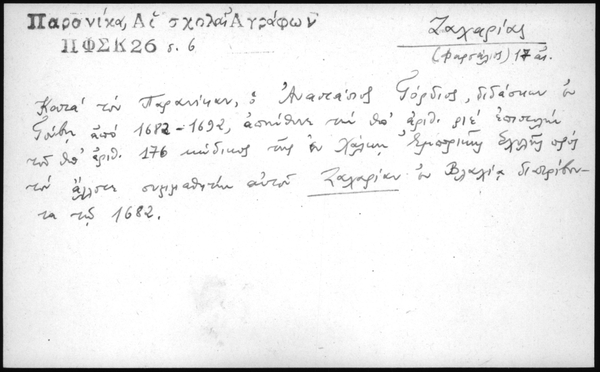 Παρανίκα, Αἱ σχολαὶ Ἀγράφων
ΠΦΣΚ26 σ. 6
Ζαχαρίας
(Φαρσάλιος) 17 αἰ.
Κατὰ τὸν Παρανίκαν, ὁ Ἀναστάσιος Γόρδιος, διδάσκων ἐν
ἀπὸ 1682-1692, ἀπηύθυνε τὴν ὑπ' ἀριθ. ριέ ἐπιστολὴν
τοῦ ὑπ' ἀριθ. 176 κώδικος τῆς ἐν Χάλκῃ Ἐμπορικῆς Σχολῆς πρὸς
τὸν ἄλλοτε συμμαθητὴν αὐτοῦ Ζαχαρίαν ἐν Βλαχίᾳ διατρίβον-
τα τῷ 1682.